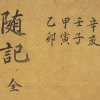 辛亥
壬子
甲寅
乙卯
随記 全